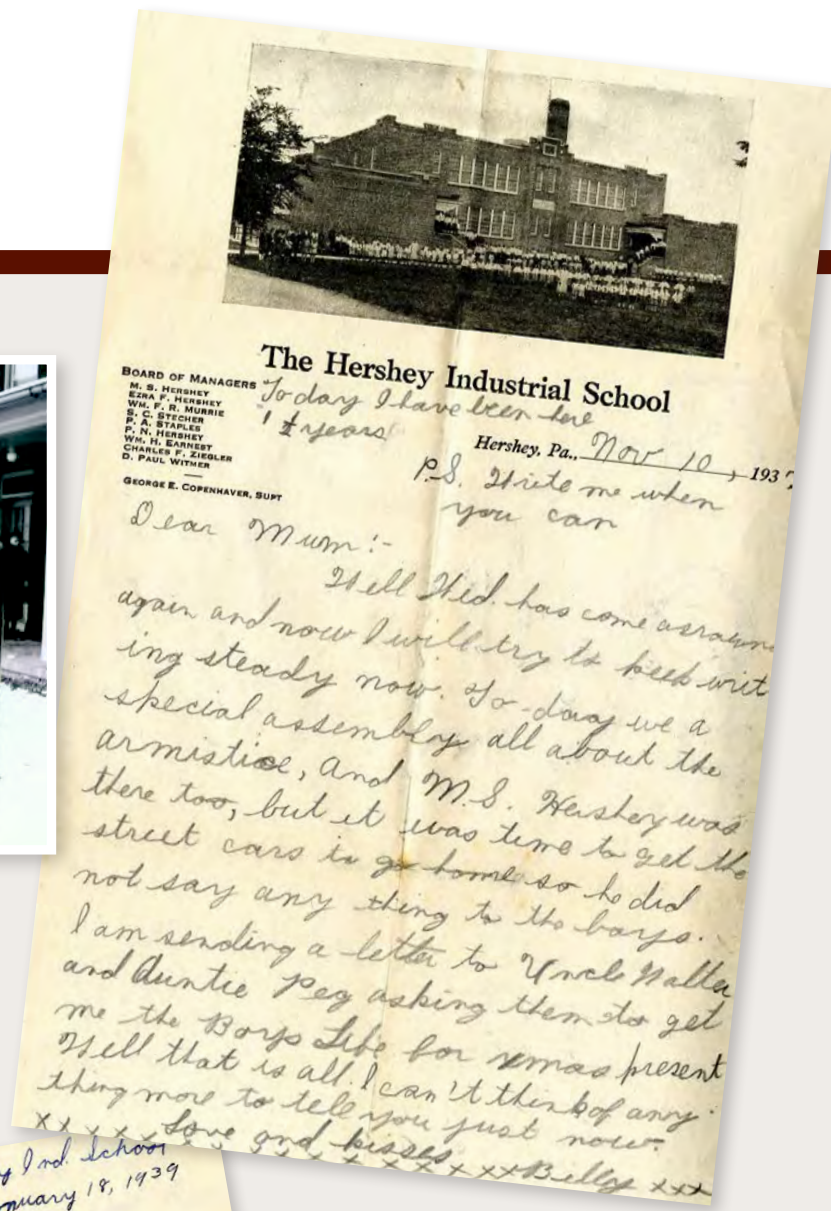 The Hershey Industrial School
BOARD OF MANAGERS
M. S. HERSHEY
EZRA F. HERSHEY
WM. F. R. MURRIE
S. C. STECHER
P. A. STAPLES
P. N. HERSHEY
WM. H. EARNEST
CHARLES F. ZIEGLER
D. PAUL WITMER
GEORGE E. COPENHAVER, SUPT
To day I have been here
years
Hershey, Pa., Nov 10, 1937
P.S. Write me when
you can
Dear Mum:-
Well Wed. has come
again and now I will try to keep writ
ing steady now. To-day we a
special assembly all about the
armistice, and M.S. Hershey was
there too, but it was time to get the
street cars to go home so he did
not say any thing to the boys.
I am sending a letter to Uncle Walter
and Auntie Peg asking them to get
me the Boys Life for xmas present
Well that is all. I can't think of any
thing more to tell you just now.
x x x x Love and kisses
x x x x x x x x x Billy xxx
Ind. School
January 18, 1939